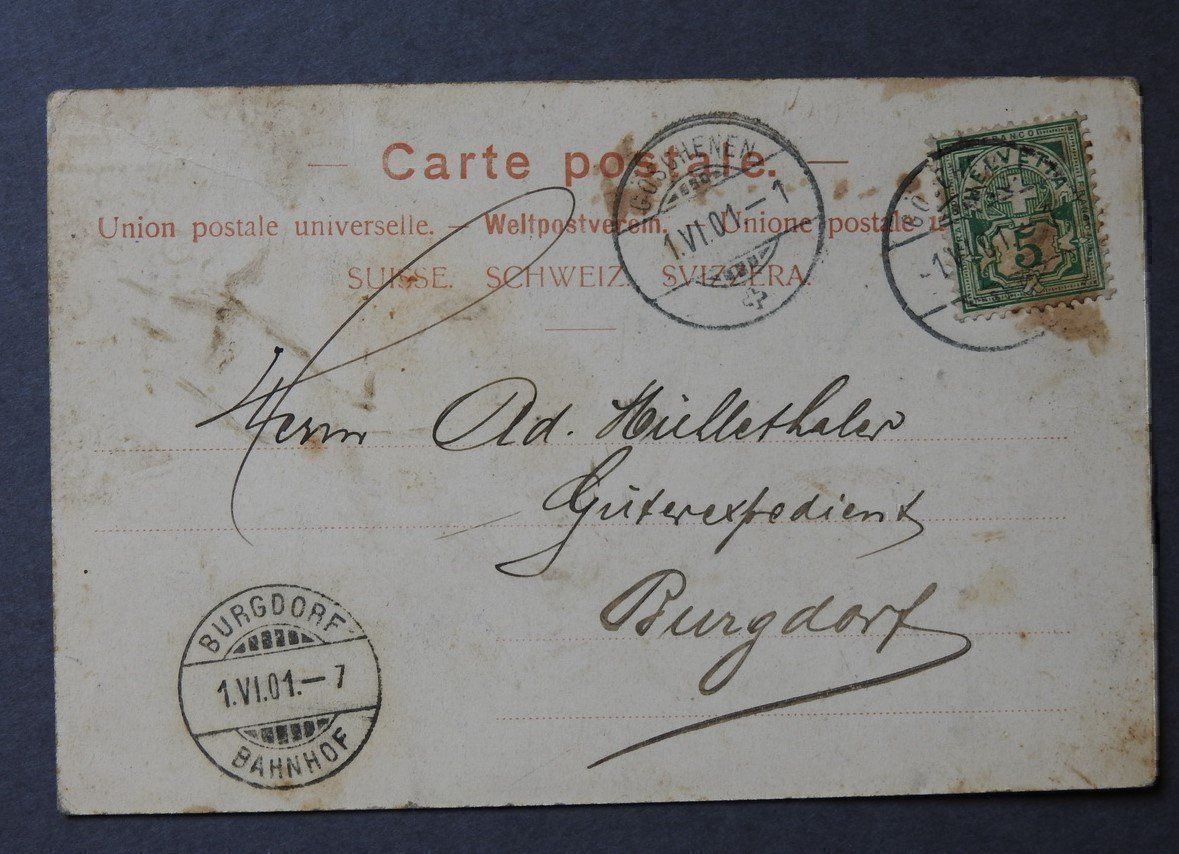 Carte postale.
Union postale universelle. — Weltpostverein. — Unione postale u
SUISSE. SCHWEIZ. SVIZZERA.
GÖSCHENEN
1.VI.01.–1
FRANCO
HELVETIA
5
GÖS
-1.VI
Herrn Ad. Müllethaler
Güterexpedient
Burgdorf
BURGDORF
1.VI.01.–7
BAHNHOF